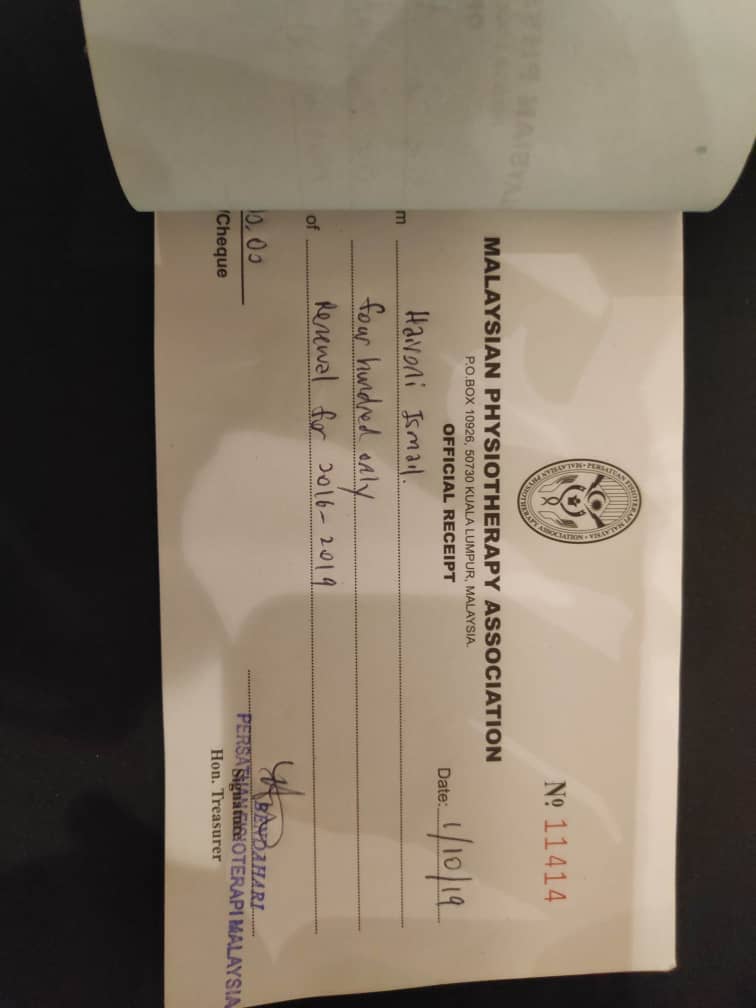 PERSATUAN FISIOTERAPI MALAYSIA • MALAYSIAN PHYSIOTHERAPY ASSOCIATION •
Nº 11414
MALAYSIAN PHYSIOTHERAPY ASSOCIATION
P.O.BOX 10926, 50730 KUALA LUMPUR, MALAYSIA.
OFFICIAL RECEIPT
Date: 1/10/19
m Haironi Ismail.
four hundred only
of Renewal for 2016-2019
0.00
/Cheque
BENDAHARI
PERSATUAN FISIOTERAPI MALAYSIA
Signature
Hon. Treasurer